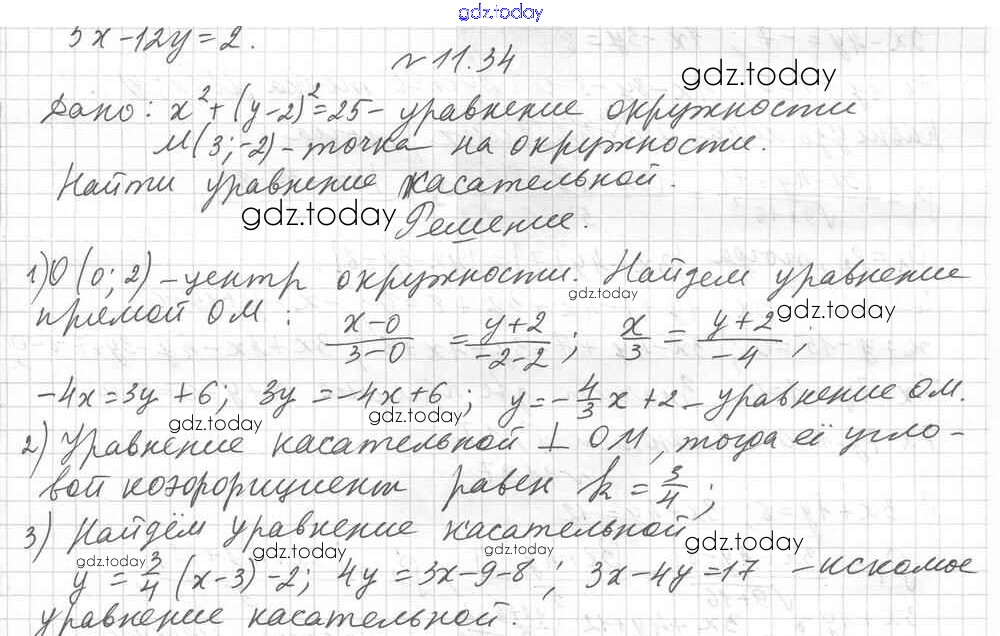 gdz.today
5x-12y=2.
№11.34
gdz.today
Дано: x²+(y-2)²=25- уравнение окружности
M(3;-2)-точка на окружности.
Найти уравнение касательной.
gdz.today
Решение.
1) O(0;2)-центр окружности. Найдем уравнение
gdz.today
прямой OM: (x-0)/(3-0) = (y+2)/(-2-2); x/3 = (y+2)/(-4);
gdz.today
-4x=3y+6; 3y=-4x+6; y=-4/3x+2-уравнение OM.
gdz.today gdz.today
2) Уравнение касательной ⊥ OM, тогда её угло-
вой коэффициент равен k=3/4;
3) Найдём уравнение касательной
gdz.today gdz.today gdz.today gdz.today
y=3/4(x-3)-2; 4y=3x-9-8; 3x-4y=17 -искомое
уравнение касательной.